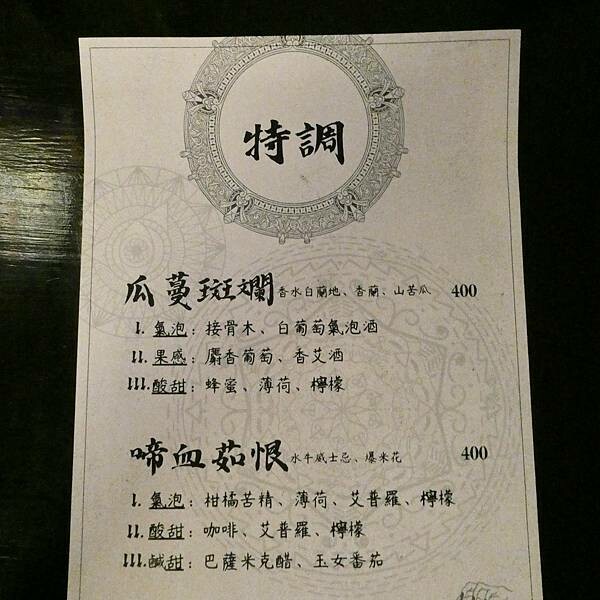 特調
瓜蔓斑斕 香水白蘭地、香蘭、山苦瓜 400
I. 氣泡：接骨木、白葡萄氣泡酒
II. 果感：麝香葡萄、香艾酒
III. 酸甜：蜂蜜、薄荷、檸檬
啼血茹恨 水牛威士忌、爆米花 400
I. 氣泡：柑橘苦精、薄荷、艾普羅、檸檬
II. 酸甜：咖啡、艾普羅、檸檬
III. 鹹甜：巴薩米克醋、玉女番茄